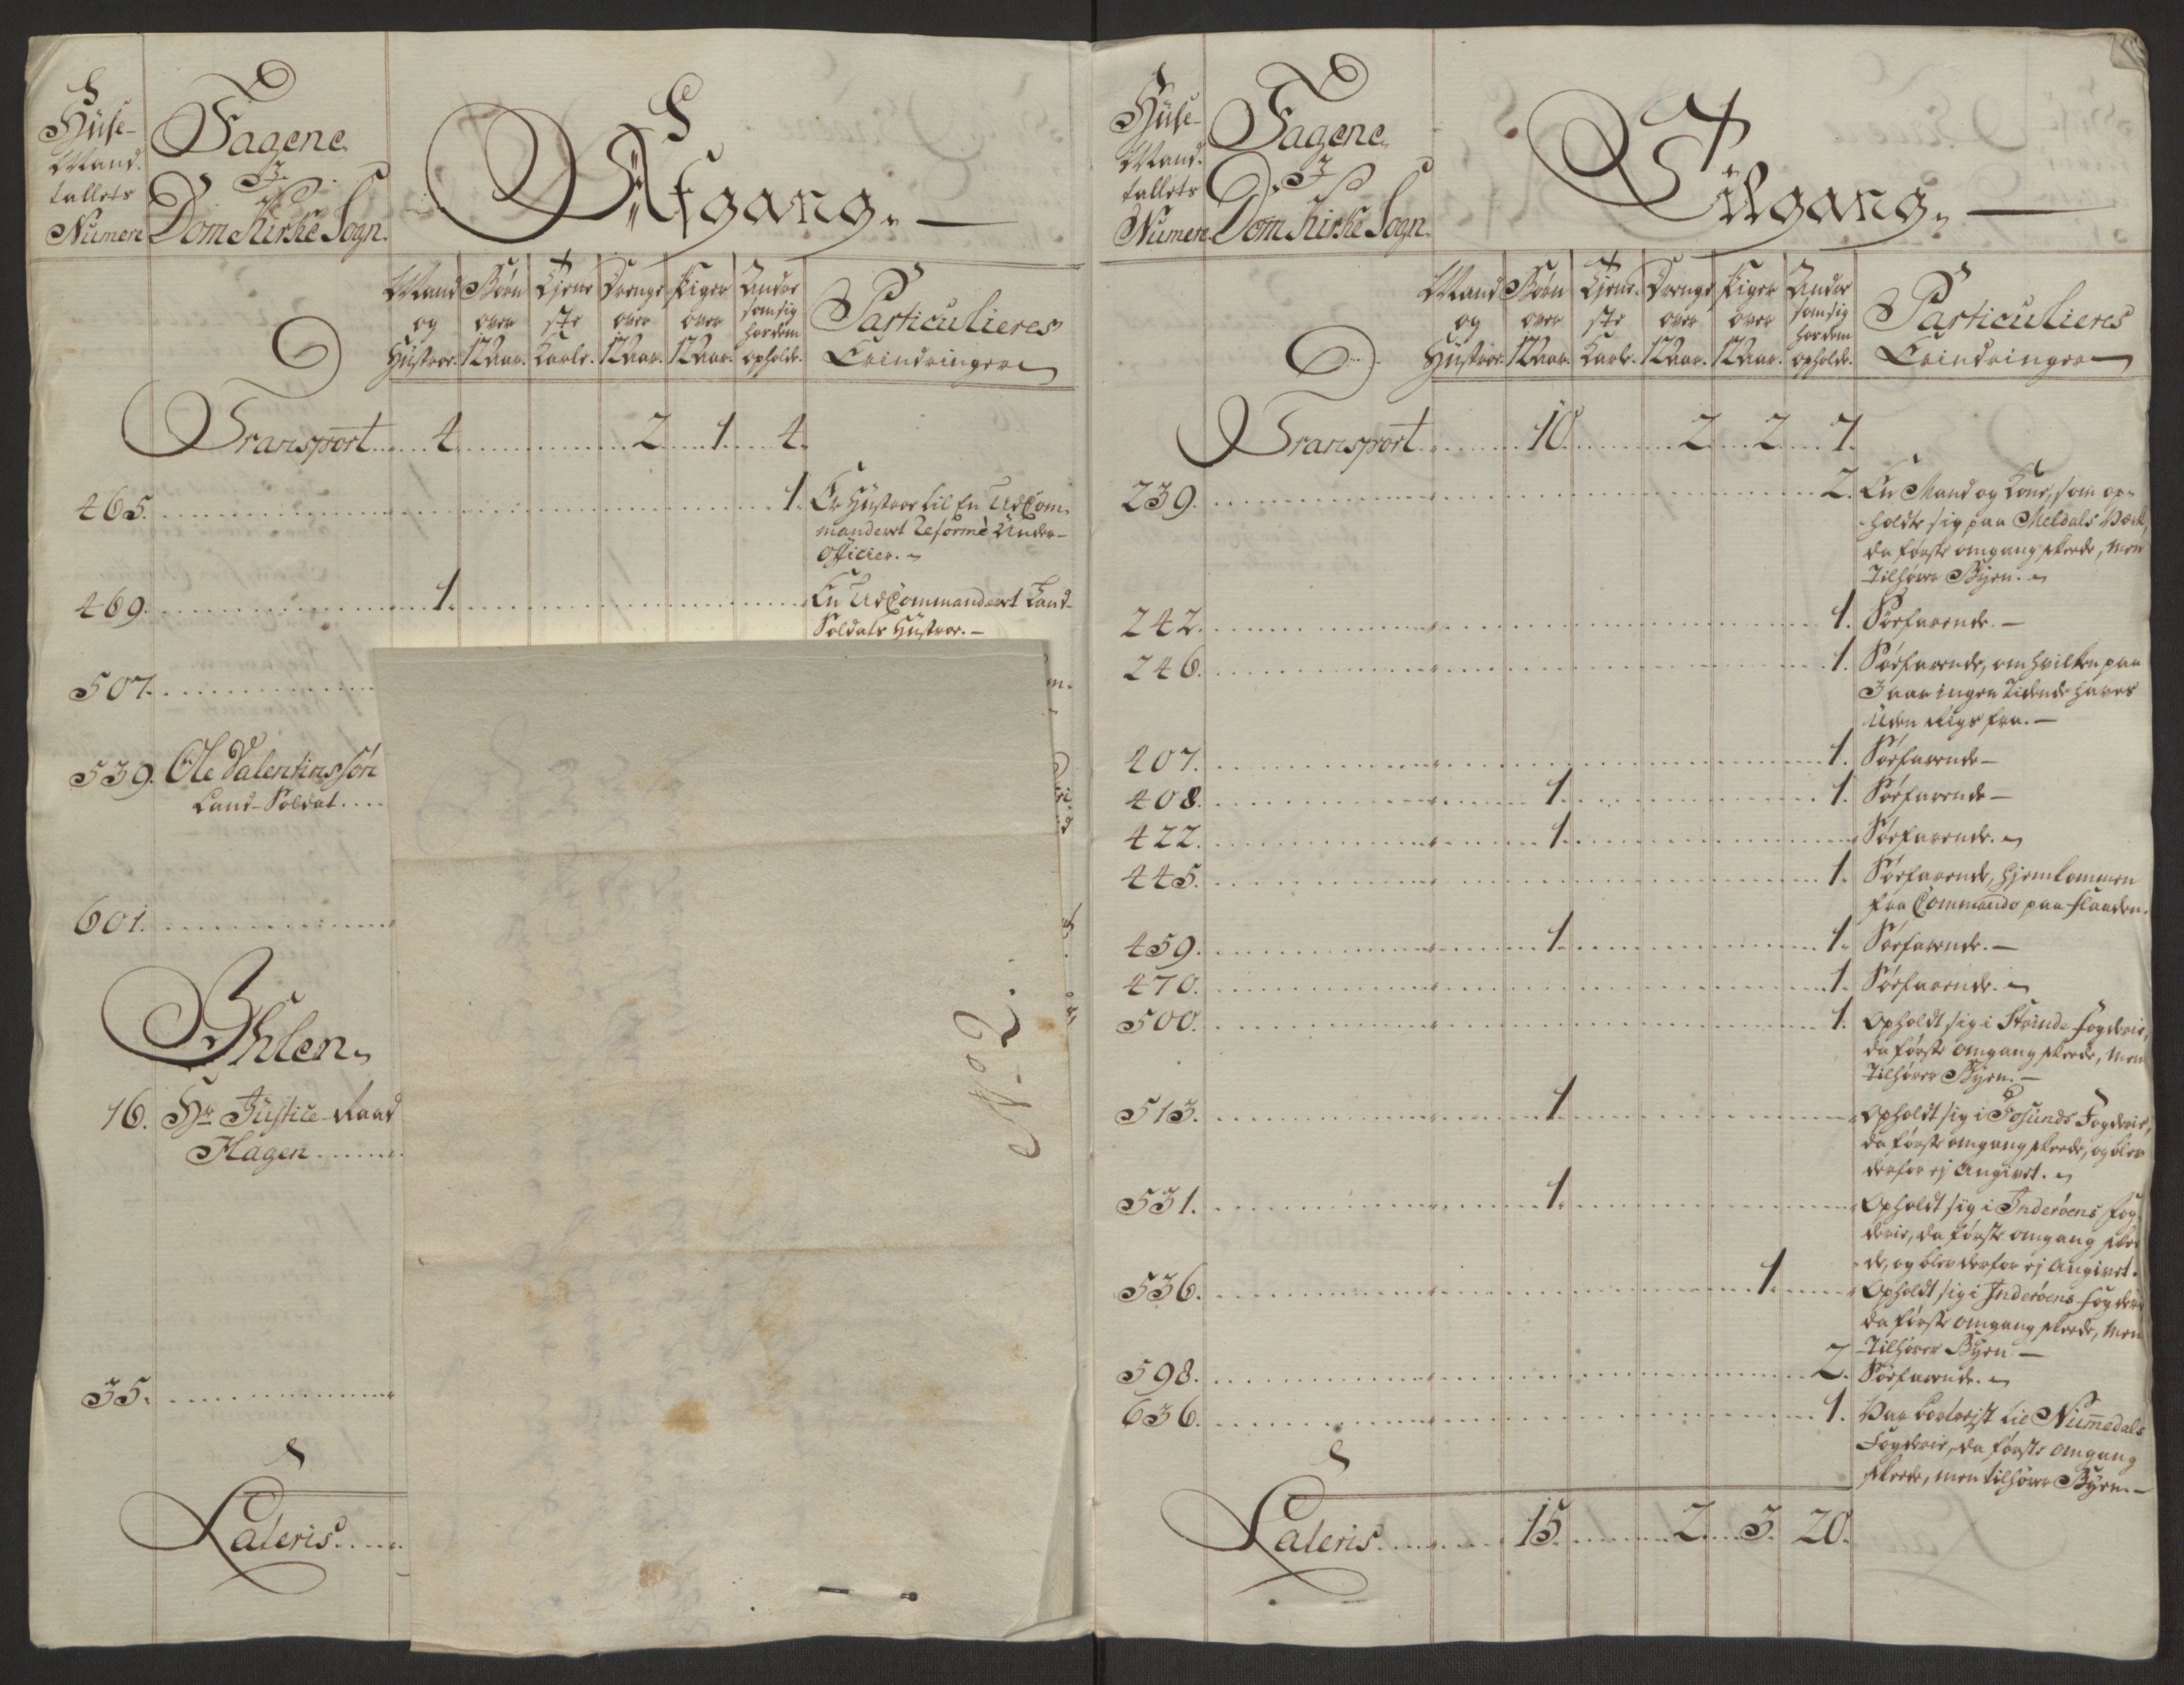 Hüse-
Mand-
tallets
Numere
Fagene
I
Dom Kirke Sogn.
Afgang.
Mand og Hustroe.
Børn over 12 Aar.
Tjene ste Karle.
Drenge over 12 Aar.
Piger over 12 Aar.
Andre som sig hos dem opholde.
Particulieres Erindringer
Transport 4. 2. 1. 4.
465. 1. Er Hustroe til En UdCom-
manderet Reformé Under-
Officier.
469. 1. En UdCommanderet Land-
Soldats Hustroe.
507.
539. Ole Valentinssøn
Land-Soldat
601.
Ihlen
16. Hr Justice-Raad
Hagen
35.
Lateris
No 2.
Hüse-
Mand-
tallets
Numere
Fagene
I
Dom Kirke Sogn.
Tilgang.
Mand og Hustroe.
Børn over 12 Aar.
Tjene ste Karle.
Drenge over 12 Aar.
Piger over 12 Aar.
Andre som sig hos dem opholde.
Particulieres Erindringer
Transport 10. 2. 2. 7.
239. 2. En Mand og Kone, som op-
holdte sig paa Meldals Værk,
da første omgang skeede, men
Tilhører Byen.
242. 1. Søefarende.
246. 1. Søefarende, om hvilken paa
3 aar ingen Tidende haves
Uden Rigs fra.
407. 1. Søefarende
408. 1. 1. Søefarende
422. 1. Søefarende.
445. 1. Søefarende, hjemkommen
fra Commando paa Flaaden.
459. 1. 1. Søefarende.
470. 1. Søefarende.
500. 1. Opholdt sig i Strinde Fogderie,
da første omgang skeede, men
Tilhører Byen.
513. 1. Opholdt sig i Fosunds Fogderie,
da første omgang skeede, og blev
derfor ej Angivet.
531. 1. Opholdt sig i Inderøens Fog
derie, da første omgang skee
de, og blev derfor ej Angivet.
536. 1. Opholdt sig i Inderøens Fogderie
da første omgang skeede, men
Tilhører Byen
598. 2. Søefarende.
636. 1. Var bortrejst til Numedals
Fogderie, da første omgang
skeede, men tilhører Byen.
Lateris 15. 2. 3. 20.